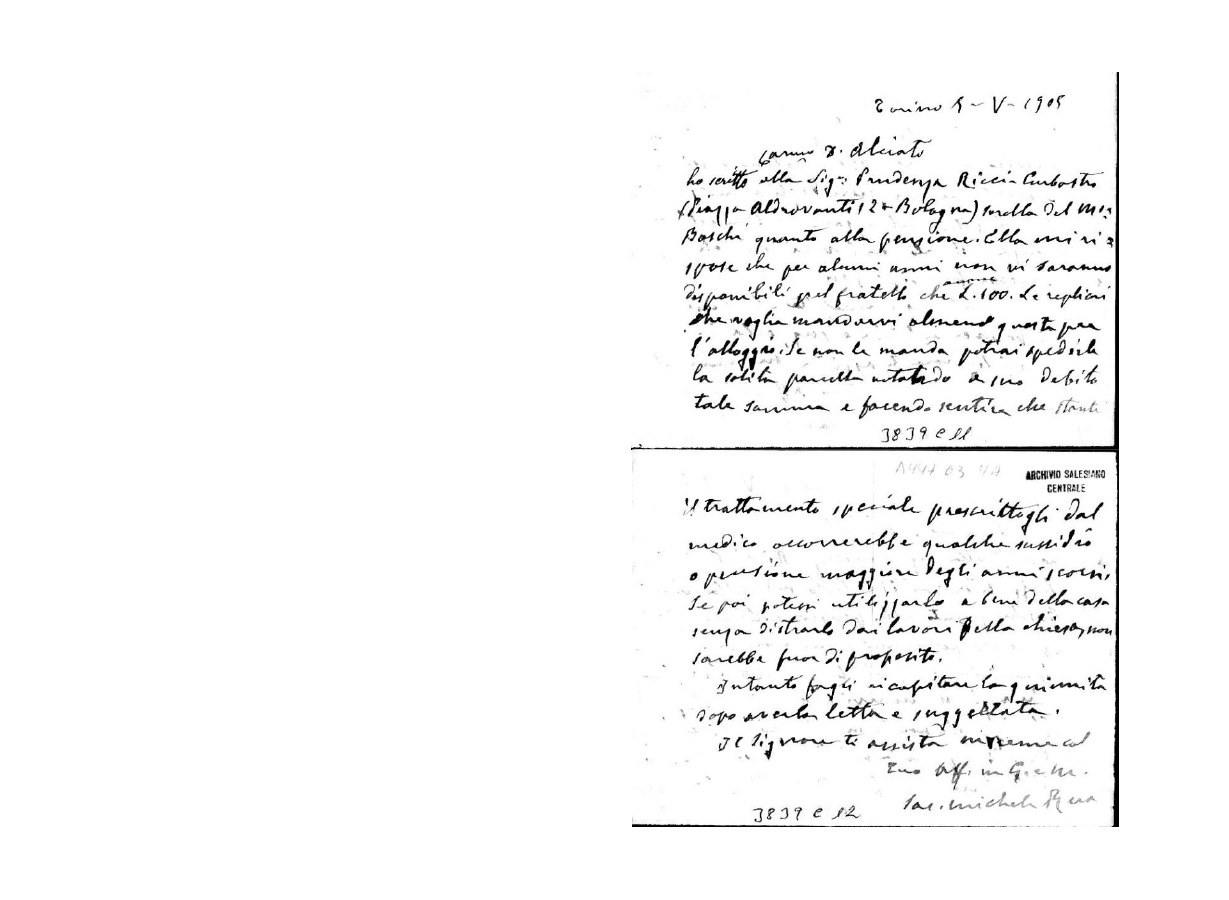 Torino 5-V-1905
Carmo D. Alciato
ho scritto alla Sigra Prudenza Ricci-Curbastro
(Piazza Aldrovanti 12 Bologna) sorella del
Boschi quanto alla pensione. Ella mi ri=
spose che per alcuni anni non vi saranno
disponibili pel fratello che annue L.100. Le replicai
che voglia mandarvi almeno questa per
l'alloggio. Se non le manda potrai spedirle
la solita parcella notando a suo debito
tale somma e facendo sentire che stante
3839 C 11
ARCHIVIO SALESIANO
CENTRALE
il trattamento speciale prescrittogli dal
medico occorrerebbe qualche sussidio
o pensione maggiore degli anni scorsi.
Se poi potessi utilizzarlo a bene della casa
senza distrarlo dai lavori della chiesa, non
sarebbe fuor di proposito.
Intanto fagli ricapitare la qui unita
dopo averla letta e suggellata.
Il Signore ti assista insieme col
Tuo aff. in G. e M.
Sac. Michele Rua
3839 C 12